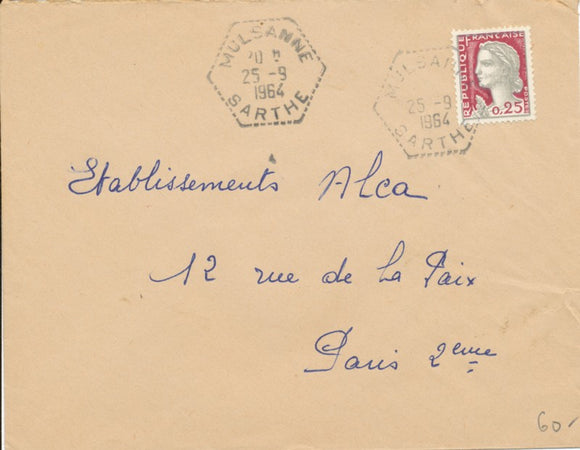 MULSANNE
25 -9
1964
SARTHE
MULSA
25 -9
1964
SARTHE
REPUBLIQUE FRANÇAISE
POSTES
0,25
Etablissements Alca
12 rue de la Paix
Paris 2eme
60